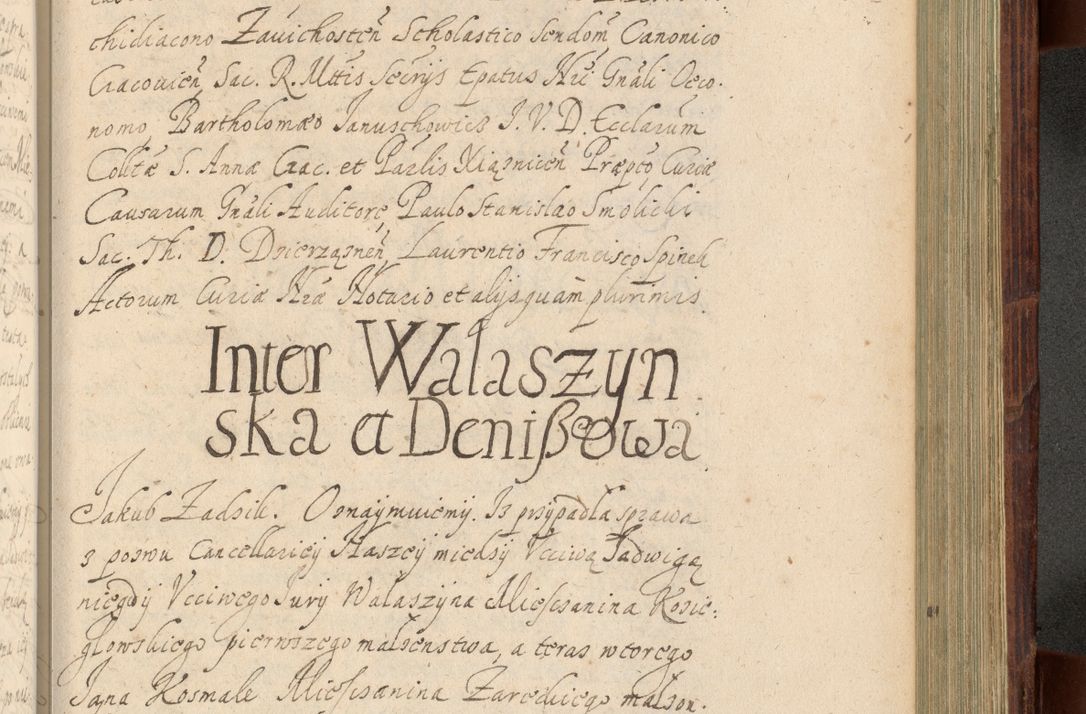 chidiacono Zavichosteñ Scholastico Sendom̃ Canonico
Cracovieñ, Sac. R. Mttis Secrijs Epatus Nri Gñali Oeco-
nomo, Bartholomæo Januschowics J. V. D. Ecclarum
Colltæ S. Annæ Crac. et Parlis Xiąznicen̄ Præpto Curiæ
Causarum Gñali Auditore, Paulo Stanislao Smolicki
Sac. Th. D. Dzierząznen̄, Laurentio Francisco Spinek
Actorum Curiæ Nræ Notario et alijs quam plurimis
Inter Walaszyn
ska et Denißowa
Jakub Zadzik. Oznaÿmuiemÿ. Iz przÿpadla sprawa
z pozwu Cancellarieÿ Naszeÿ miedzÿ Vcciwą Jadwigą
niegdÿ Vcciwego Jurÿ Walaszÿna Miescsanina Kozie:
glowskiego pierwszego malzenstwa, a teraz wtorego
Jana Kosmale Miescsanina Zareckiego malzon: